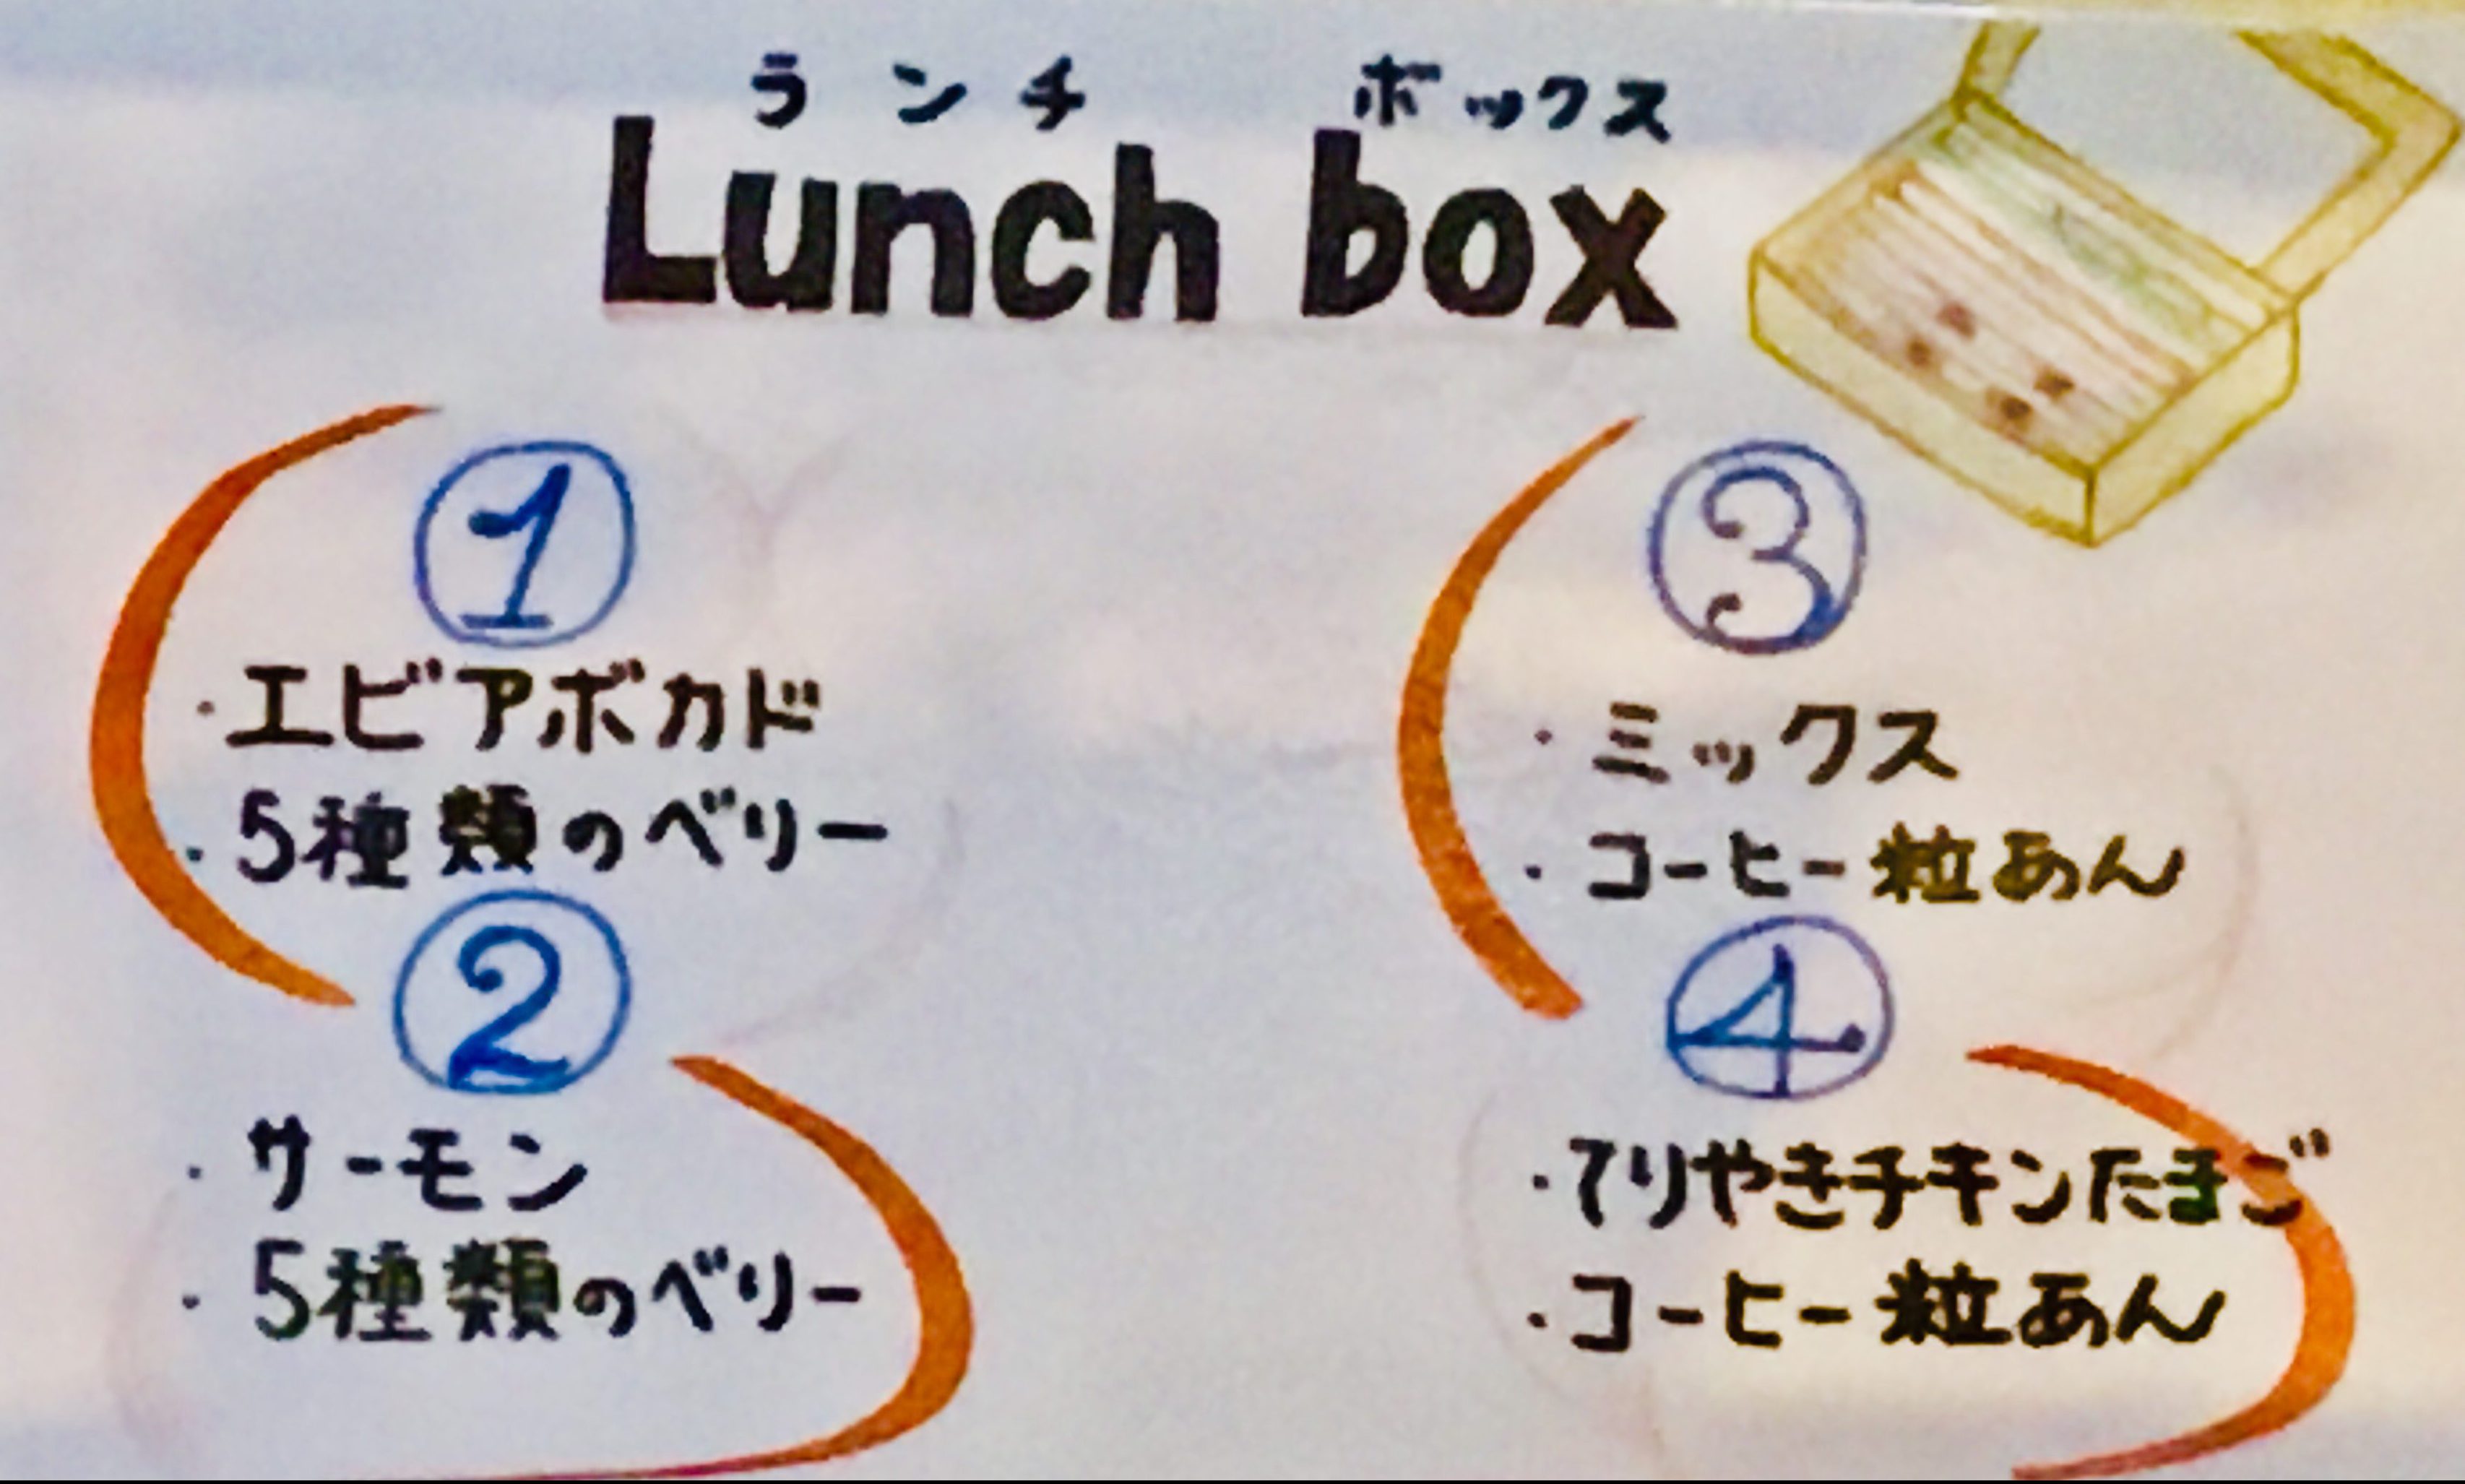 ランチ ボックス
Lunch box
①
・エビアボカド
・5種類のベリー
②
・サーモン
・5種類のベリー
③
・ミックス
・コーヒー粒あん
④
・てりやきチキンたまご
・コーヒー粒あん